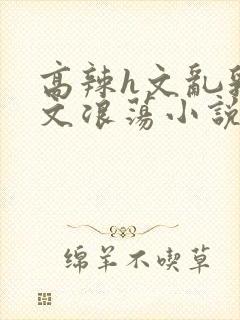 高辣h文亂
文浪蕩小説
绵羊不喫草